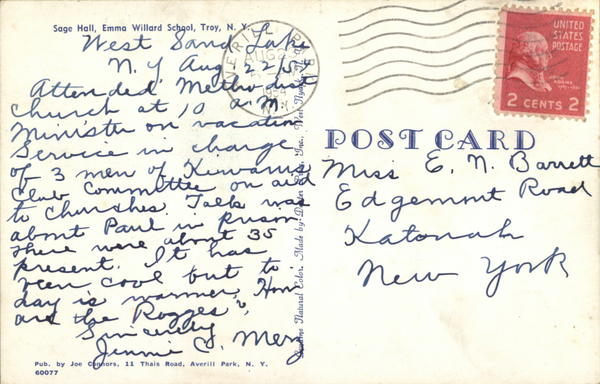 Sage Hall, Emma Willard School, Troy, N. Y.
West Sand Lake
N.Y. Aug 22/54
Attended Methodist
church at 10 a.m.
Minister on vacation
Service in charge
of 3 men of Kiwanis
Club Committee on aid
to churches. Talk was
about Paul in prison
There were about 35
present. It has
been cool but to
day is warmer. How
are the
Sincerely
Jennie C.
Pub. by Joe Connors, 11 Thais Road, Averill Park, N. Y.
60077
AVERILL PARK
AUG
N.Y.
Natural Color. Made by
Inc., West
UNITED
STATES
POSTAGE
ADAMS
2 CENTS 2
POST CARD
Miss E. N. Barrett
Edgemont Road
Katonah
New York